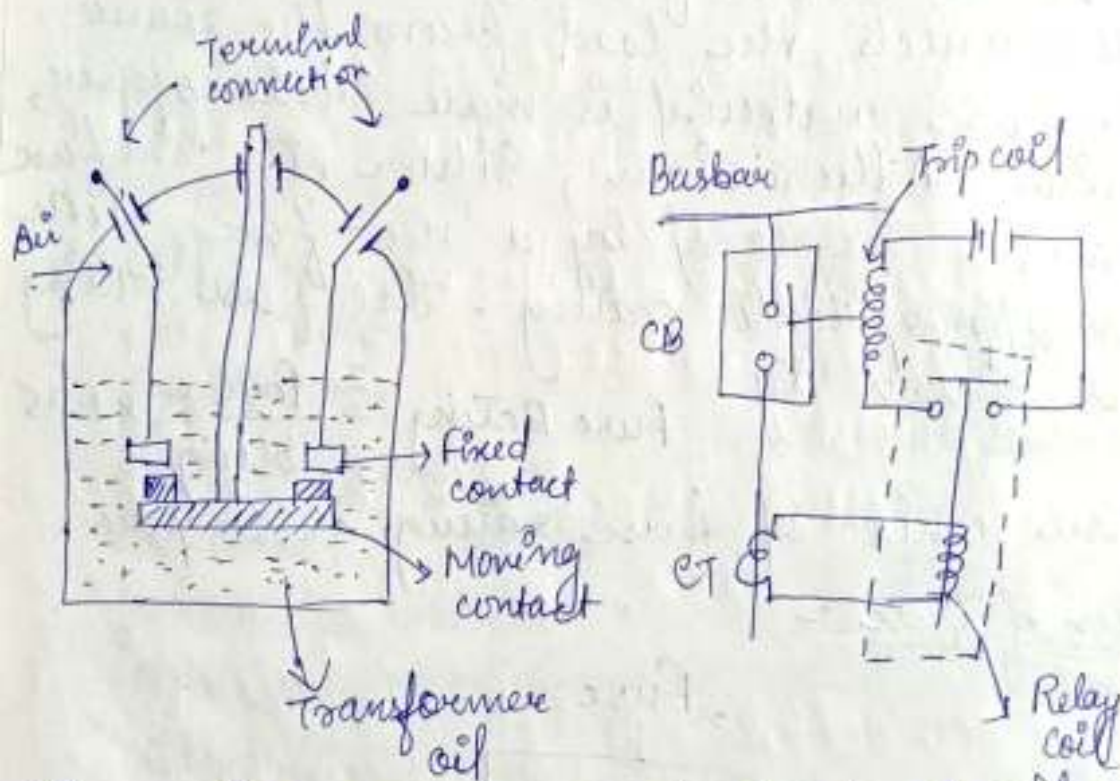 Terminal
connection
Air
Fixed
contact
Moving
contact
Transformer
oil
Busbar
Trip coil
CB
CT
Relay
coil